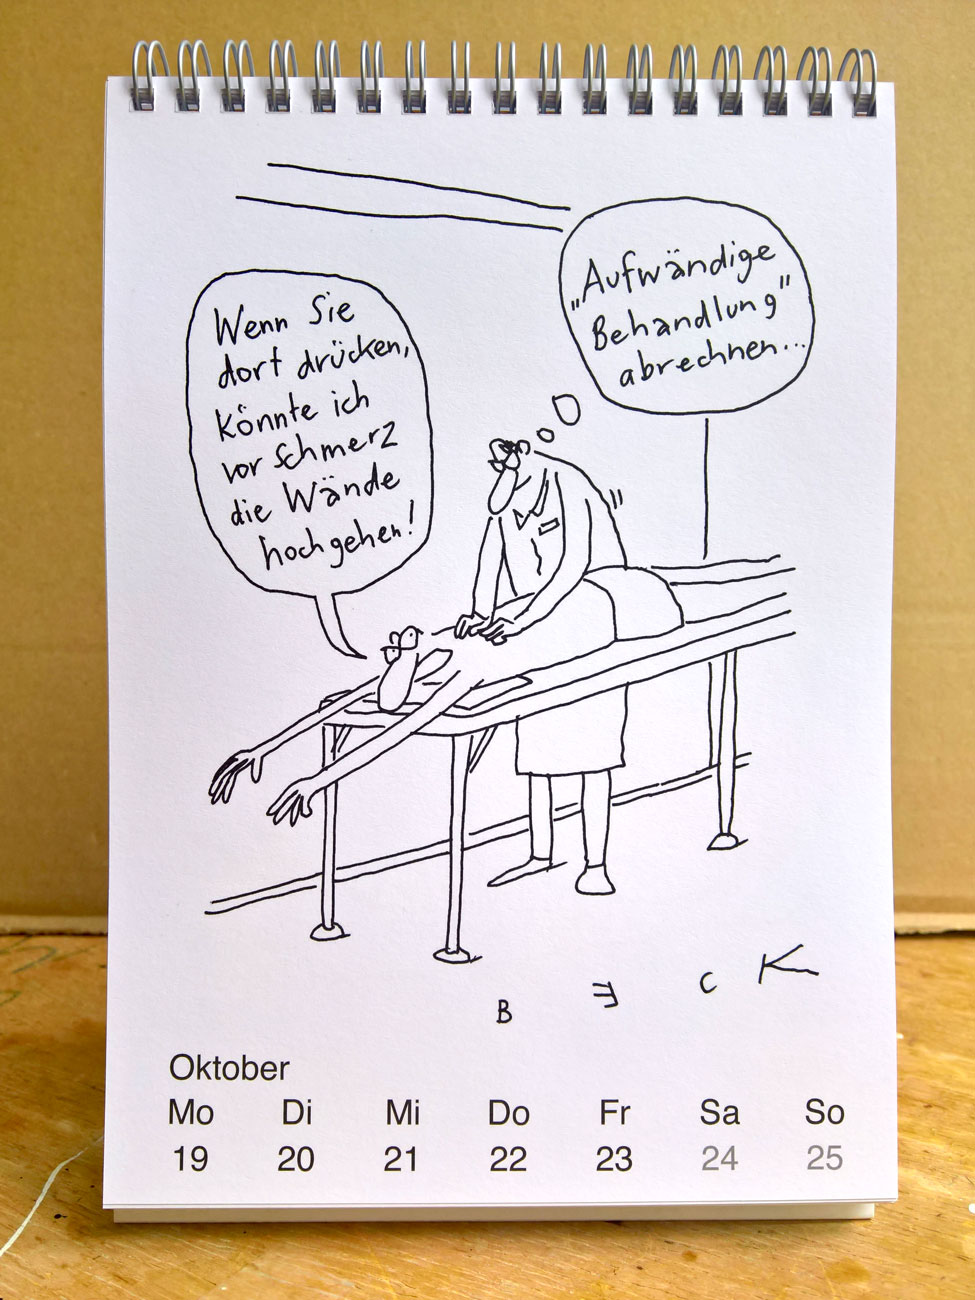 Wenn Sie
dort drücken,
könnte ich
vor Schmerz
die Wände
hochgehen!
„Aufwändige
Behandlung"
abrechnen...
BECK
Oktober
Mo Di Mi Do Fr Sa So
19 20 21 22 23 24 25